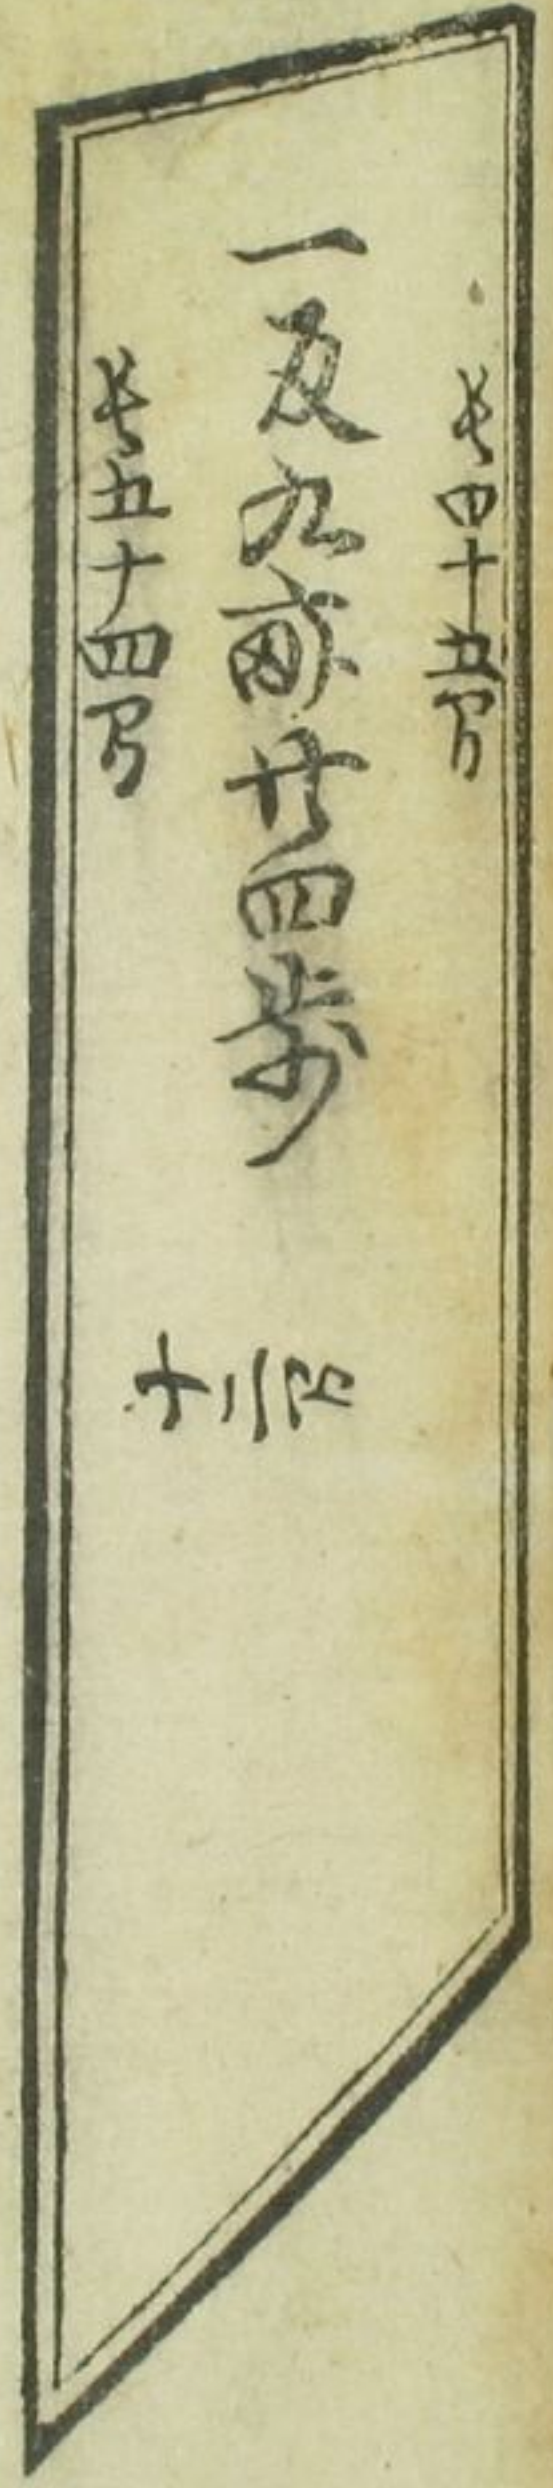 長四十五間
一反九畝廿四歩
長五十四間
十二間